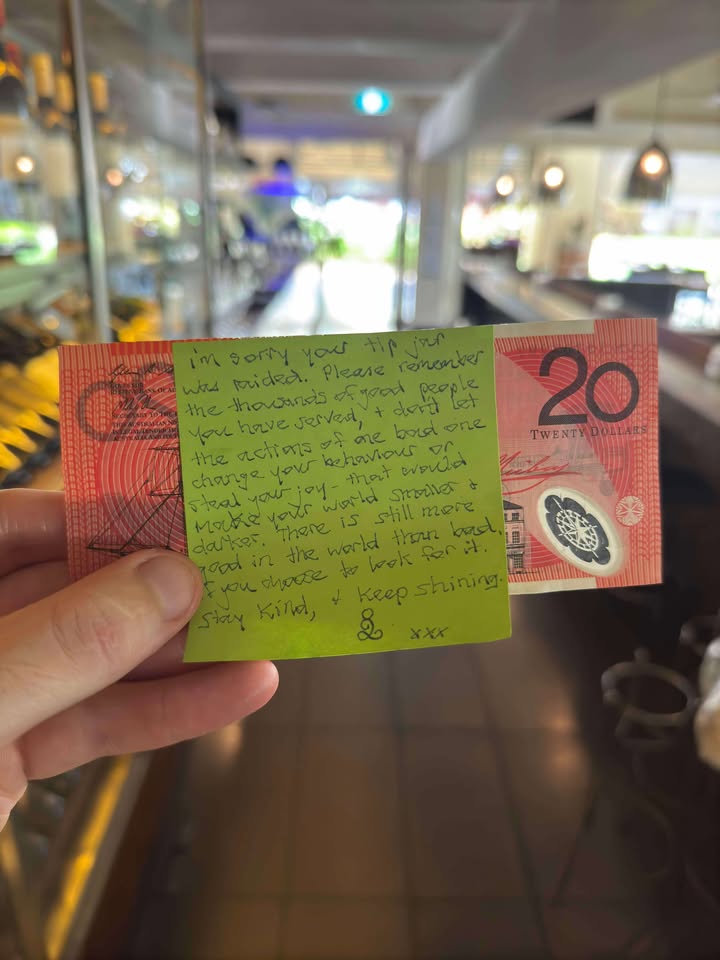 im sorry your tip jar
was raided. Please remember
the thousands of good people
you have served, + don't let
the actions of one bad one
change your behaviour or
steal your joy - that would
make your world smaller +
darker. There is still more
good in the world than bad,
if you choose to look for it.
Stay kind, + keep shining.
xxx
20
TWENTY DOLLARS